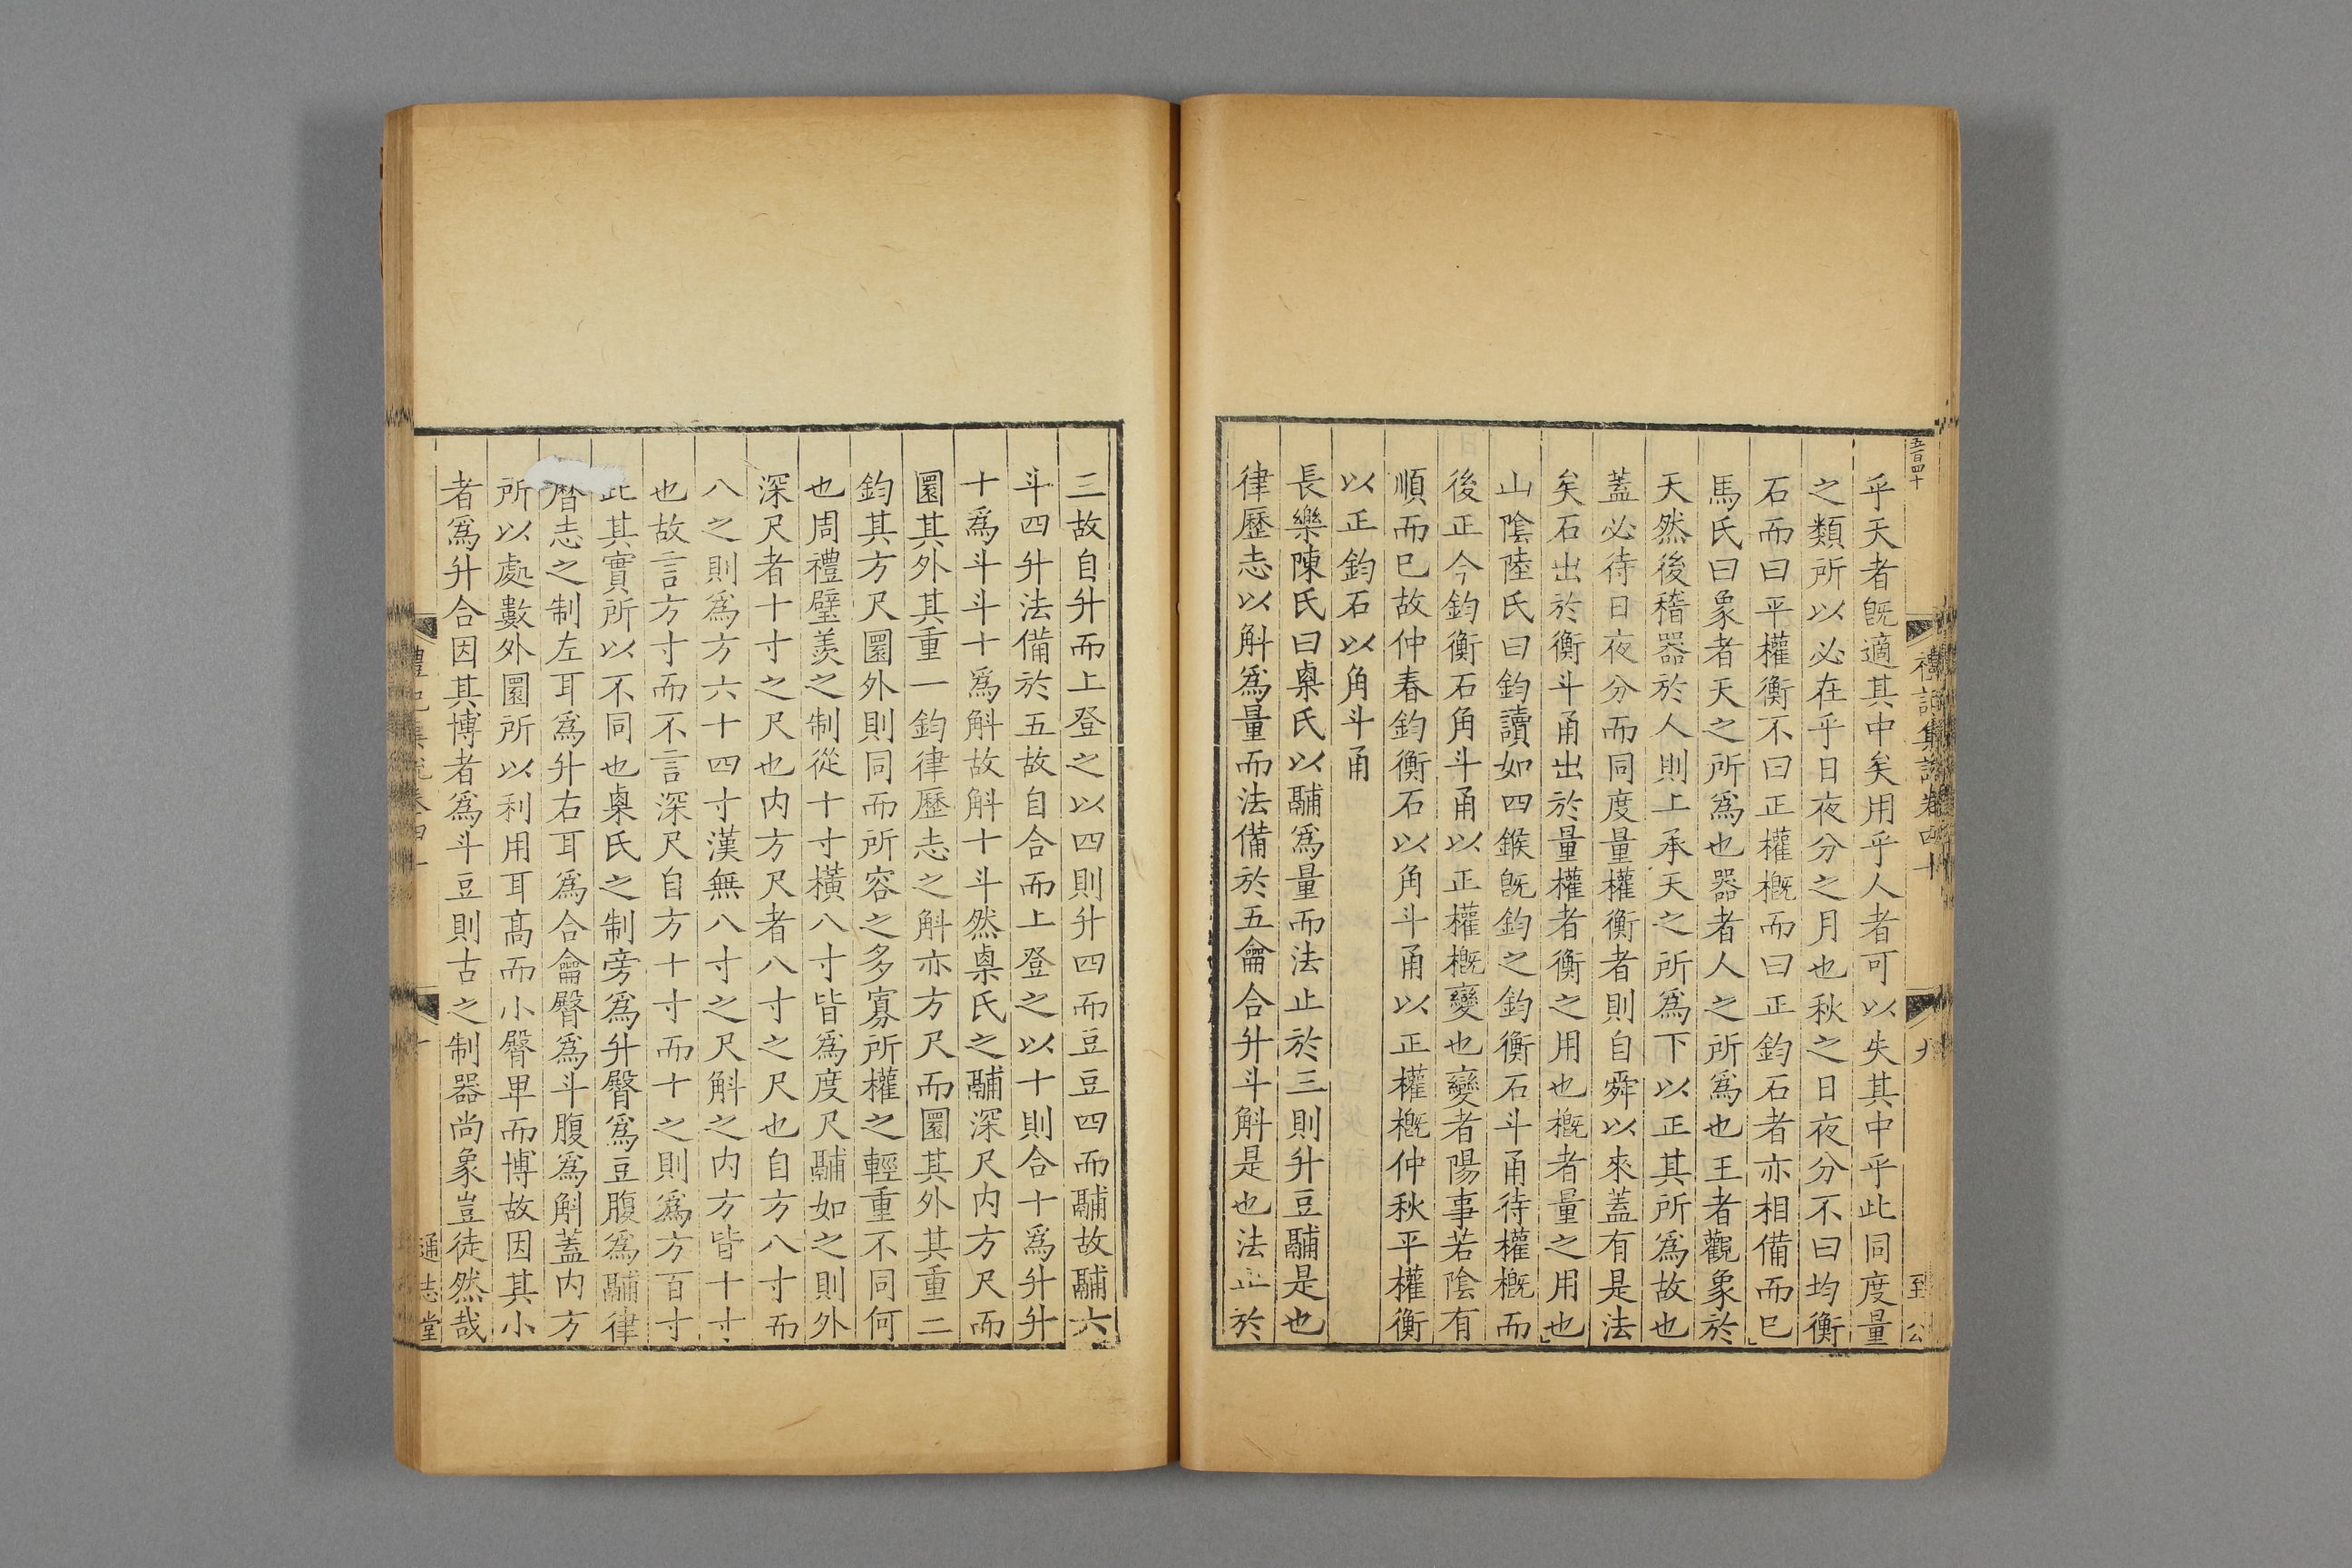 五百四十
禮記集說卷四十
九
乎天者旣適其中矣用乎人者可以失其中乎此同度量
之類所以必在乎日夜分之月也秋之日夜分不曰均衡
石而曰平權衡不曰正權槪而曰正鈞石者亦相備而已
馬氏曰象者天之所爲也器者人之所爲也王者觀象於
天然後稽器於人則上承天之所爲下以正其所爲故也
蓋必待日夜分而同度量權衡者則自舜以來蓋有是法
矣石出於衡斗甬出於量權者衡之用也槪者量之用也
山陰陸氏曰鈞讀如四鍭旣鈞之鈞衡石斗甬待權槪而
後正今鈞衡石角斗甬以正權槪變也變者陽事若陰有
順而已故仲春鈞衡石以角斗甬以正權槪仲秋平權衡
以正鈞石以角斗甬
長樂陳氏曰㮚氏以鬴爲量而法止於三則升豆鬴是也
律歷志以斛爲量而法備於五龠合升斗斛是也法止於
三故自升而上登之以四則升四而豆豆四而鬴故鬴六
斗四升法備於五故自合而上登之以十則合十爲升升
十爲斗斗十爲斛故斛十斗然㮚氏之鬴深尺内方尺而
圜其外其重一鈞律歷志之斛亦方尺而圜其外其重二
鈞其方尺圜外則同而所容之多寡所權之輕重不同何
也周禮璧羨之制從十寸橫八寸皆爲度尺鬴如之則外
深尺者十寸之尺也内方尺者八寸之尺也自方八寸而
八之則爲方六十四寸漢無八寸之尺斛之内方皆十寸
也故言方寸而不言深尺自方十寸而十之則爲方百寸
此其實所以不同也㮚氏之制旁爲升臀爲豆腹爲鬴律
曆志之制左耳爲升右耳爲合龠臀爲斗腹爲斛蓋内方
所以處數外圜所以利用耳髙而小臀卑而博故因其小
者爲升合因其博者爲斗豆則古之制器尚象豈徒然哉
通志堂